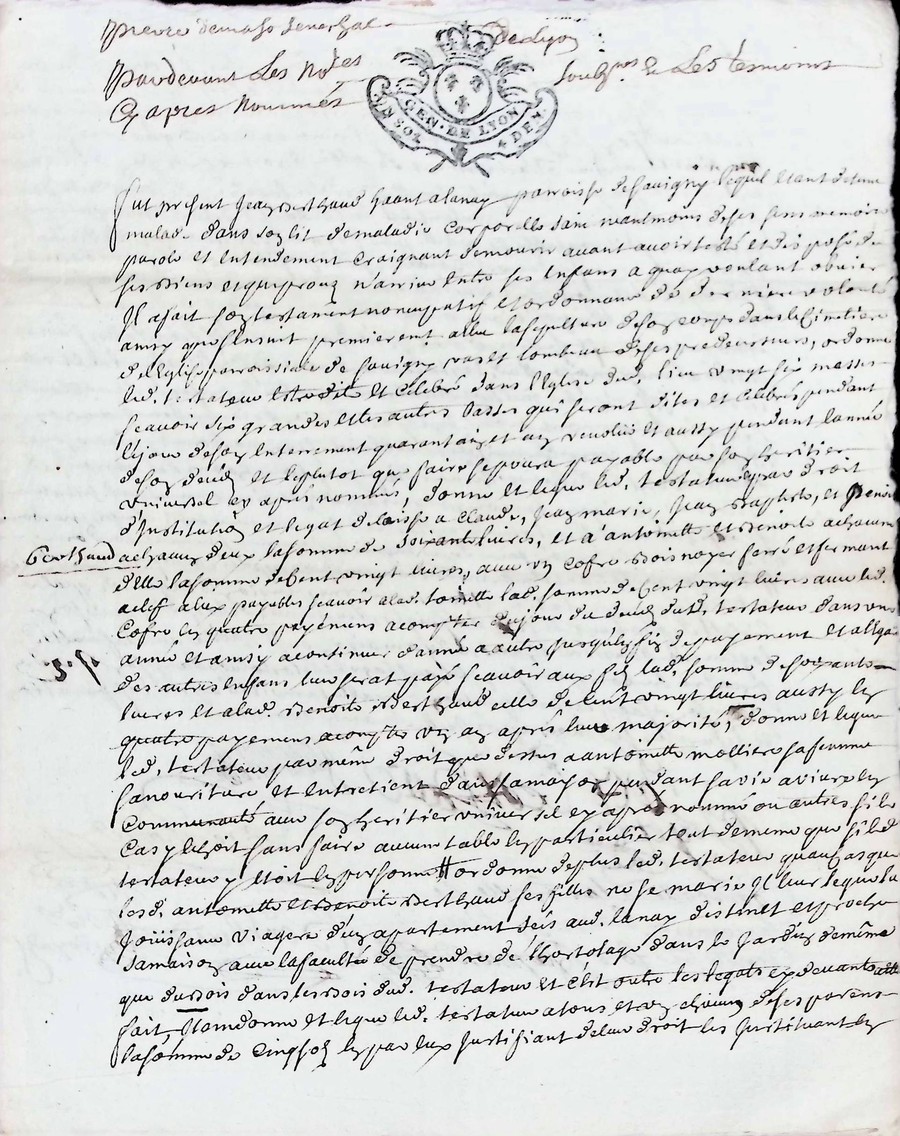 pierre demaso Senechal de Lyon
Pardevant Les No.res Soulz.nes & Les temoins
Cy apres Nommés
GEN. DE LYON
UN SOL 4 DEN.
fut present Jean Berthaud habitant alanay parroisse de Savigny lequel Etant detenu
malade dans son lit de maladie corporelle sain neantmoins de ses sens memoire
parole et Entendement craignant de mourir avant avoir testé et disposé de
ses Biens et que proces n'arrive Entre ses Enfans a quoy voulant obvier
Il a fait son testament noncupatif et ordonnance de derniere volonté
ainsy que s'Ensuit premierement a Elu la sepulture de son corps dans le Cimetiere
de l'Eglise parroissiale de Savigny vas et tombeau de ses predecesseurs, ordonne
led. testateur Etre dite et Celebré dans l'Eglise dud. lieu vingt six messes
scavoir six grandes et les autres basses qui seront dites et celebrés pendant
le jour de son Enterrement quarantain et an revolu et aussy pendant l'année
de son deced et le plutot que faire se poura payable par son heritier
universel cy apres nommé, donne et legue led. testateur par droit
d'Institution et legat delaisse a Claude, Jean marie, Jean Baptiste, et Benoit
Berthaud a chacun d'eux la somme de soixante livres, et a antoinette et Benoite a chacune
d'elle la somme de Cent vingt livres, avec un cofre Bois noyer ferré et fermant
a clef a Eux payables scavoir a lad. toinette lad. somme de Cent vingt livres avec led.
Cofre En quatre payemens a compter du jour du deced dud. testateur dans une
année et ainsy a continuer d'année a autre jusqu'En fin de payement et a l'Egard
des autres Enfans leur serat payé scavoir aux fils lad. somme de soixante
livres et a lad. Benoite Berthaud celle de cent vingt livres aussy En
quatre payemens a compter un an après leur majorité, donne et legue
led. testateur par même droit que dessus a antoinette mollière sa femme
sa nouriture et Entretient dans sa maison pendant sa vie a vivre En
Communauté avec son heritier universel cy après nommé ou autres, si le
Cas y Echoit sans faire aucune table En particulier tout de meme que si led.
testateur y Etoit En personne # ordonne de plus led. testateur qu'au cas que
lesd. antoinette et Benoite Berthaud ses filles ne se marie Il leur legue la
Joüissance viagere d'un apartement sis aud. lanay distinct et proche
sa maison avec la faculté de prendre de l'hortolage dans le jardin de même
que du Bois dans les Bois dud. testateur et c'Est outre les legats cy devant
fait, Item donne et legue led. testateur a tous et un chacun de ses parens
la somme de Cinq sols En par Eux justifiant de leur droit les Instituant En